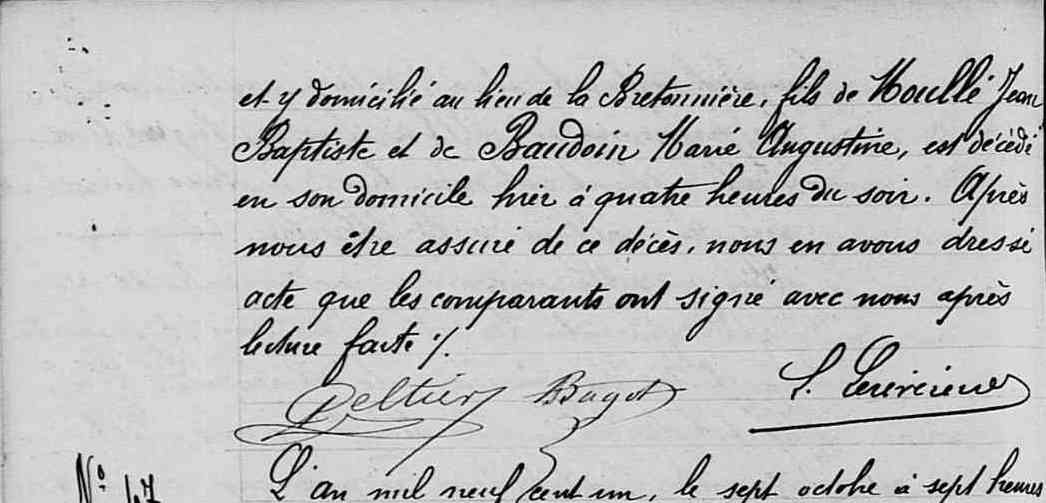 et y domicilié au lieu de la Bretonnière, fils de Houllé Jean
Baptiste et de Baudoin Marie Augustine, est décédé
en son domicile hier à quatre heures du soir. Après
nous être assuré de ce décès, nous en avons dressé
acte que les comparants ont signé avec nous après
lecture faite ./.
Peltier Bagot L.
N° 47 L'an mil neuf cent un, le sept octobre à sept heures